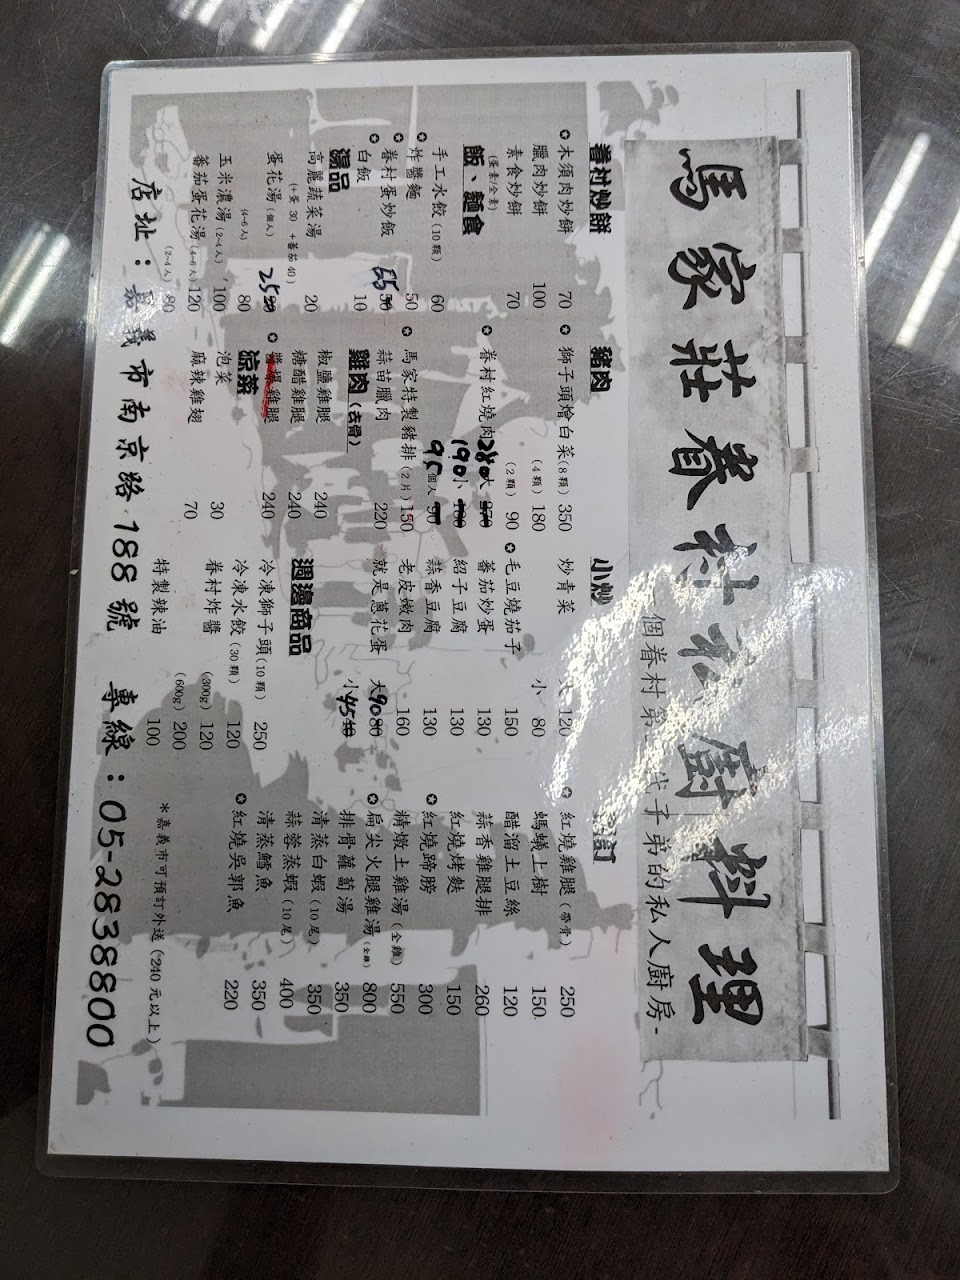 馬家莊眷村私廚料理
個眷村第 代子弟的私人廚房-
眷村炒餅
✪木須肉炒餅 70
臘肉炒餅 100
素食炒餅 70
(蛋素/全素)
飯、麵食
手工水餃(10顆) 60
✪炸醬麵 50
✪眷村蛋炒飯 55
✪白飯 10
湯品
高麗蔬菜湯 20
(+蛋 30 +蕃茄 40)
蛋花湯(個人) 25
(4~6人) 80
玉米濃湯(2~4人) 100
蕃茄蛋花湯(4~6人) 120
(2~4人) 80
豬肉
✪獅子頭燴白菜(8顆) 350
(4顆) 180
(2顆) 90
✪眷村紅燒肉 大 280 270
小 190
個人 95 90
✪馬家特製豬排(2片) 150
蒜苗臘肉 220
雞肉(去骨)
椒鹽雞腿 240
糖醋雞腿 240
✪醬爆雞腿 240
涼菜
泡菜 30
麻辣雞翅 70
小炒
炒青菜 大 120
小 80
✪毛豆燒茄子 150
蕃茄炒蛋 130
紹子豆腐 130
蒜香豆腐 130
老皮嫩肉 160
就是蔥花蛋 大 90 80
小 45 40
週邊商品
冷凍獅子頭(10顆) 250
冷凍水餃(30顆) 120
眷村炸醬 (300g) 120
(600g) 200
特製辣油 100
訂
✪紅燒雞腿(帶骨) 250
螞蟻上樹 150
醋溜土豆絲 120
蒜香雞腿排 260
紅燒烤麩 150
✪紅燒蹄膀 300
精燉土雞湯(全雞) 550
✪扁尖火腿雞湯(全雞) 800
排骨蘿蔔湯 350
清蒸白蝦(10尾) 350
蒜蓉蒸蝦(10尾) 400
清蒸鱈魚 350
✪紅燒吳郭魚 220
*嘉義市可預訂外送(240元以上)
店址：嘉義市南京路188號 專線：05-2838800